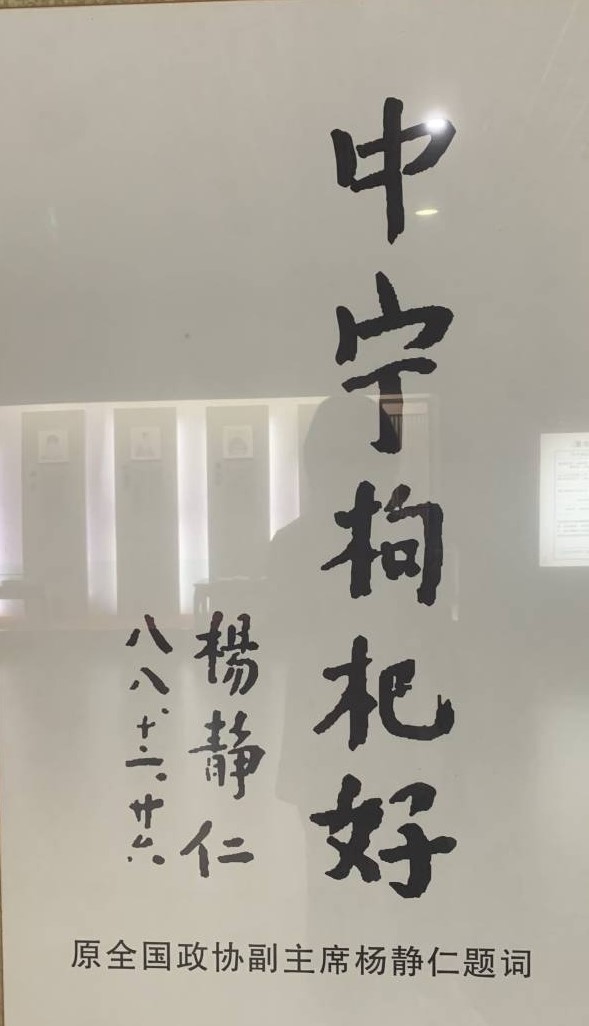 中宁枸杞好
楊静仁
八八、十二、廿六
原全国政协副主席杨静仁题词